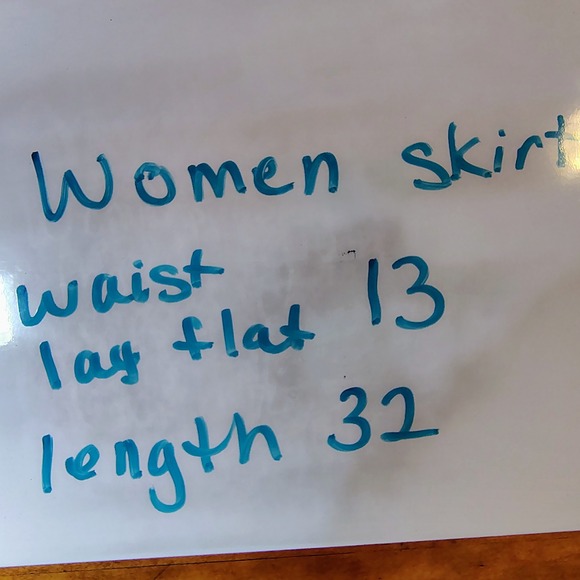 Women skirt
waist
lay flat 13
length 32